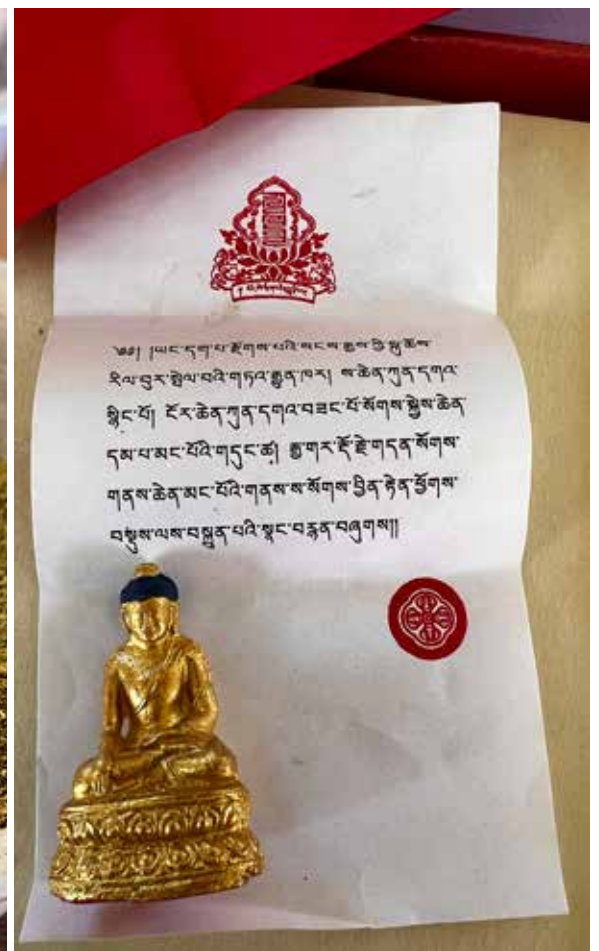 ༄༅། །ཡང་དག་པ་རྫོགས་པའི་སངས་རྒྱས་ཀྱི་སྐུ་ཆོས་
རིལ་བུར་སྤེལ་བའི་གཏའ་རྒྱན་ཁར། ས་ཆེན་ཀུན་དགའ་
སྙིང་པོ། ངོར་ཆེན་ཀུན་དགའ་བཟང་པོ་སོགས་སྐྱེས་ཆེན་
དམ་པ་མང་པོའི་གདུང་ཚྭ། རྒྱ་གར་རྡོ་རྗེ་གདན་སོགས་
གནས་ཆེན་མང་པོའི་གནས་ས་སོགས་བྱིན་རྟེན་ཕྱོགས་
བསྡུས་ལས་བསྐྲུན་པའི་སྣང་བརྙན་བཞུགས།།